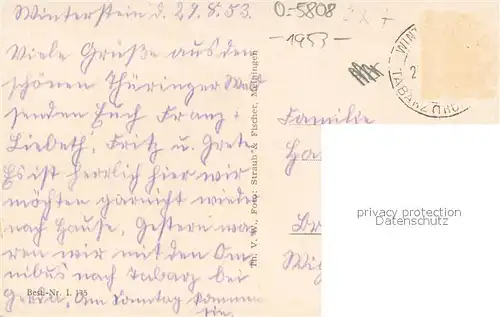 Winterstein d. 29.8.53.
O-5808
-1953-
Viele Grüße aus dem
schönen Thüringer Wald
senden Euch Franz +
Liebeth, Fritz u. Grete.
Es ist herrlich hier wir
möchten garnicht wieder
nach Hause. Gestern wa-
ren wir mit den Om-
nibus nach Tabarz bei
Gerda. Am Sonntag kommen
sie
Best.-Nr. I. 135
Th. V. W., Foto: Straub & Fischer, Meiningen
WINT
TABARZ (THÜR
Familie
privacy protection
Datenschutz